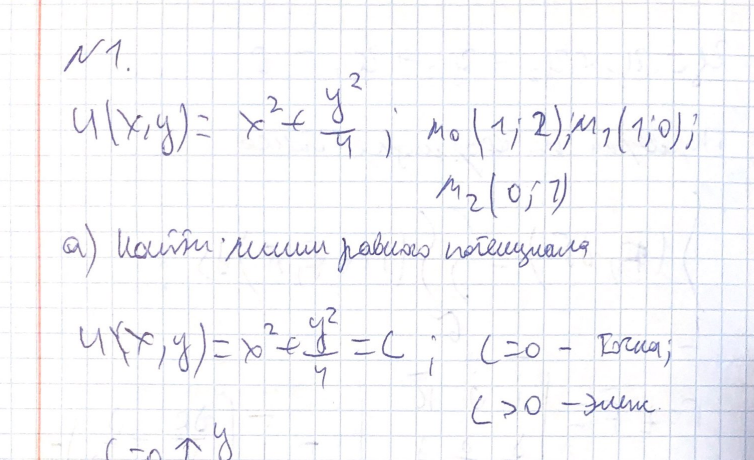 N1.
U(x,y) = x² + y²/4 ; M₀(1; 2); M₁(1; 0);
M₂(0; 1)
a) Найти: линии равного потенциала
U(x,y) = x² + y²/4 = C ; C=0 – точка;
C>0 – элипс.
C=0 ↑ y